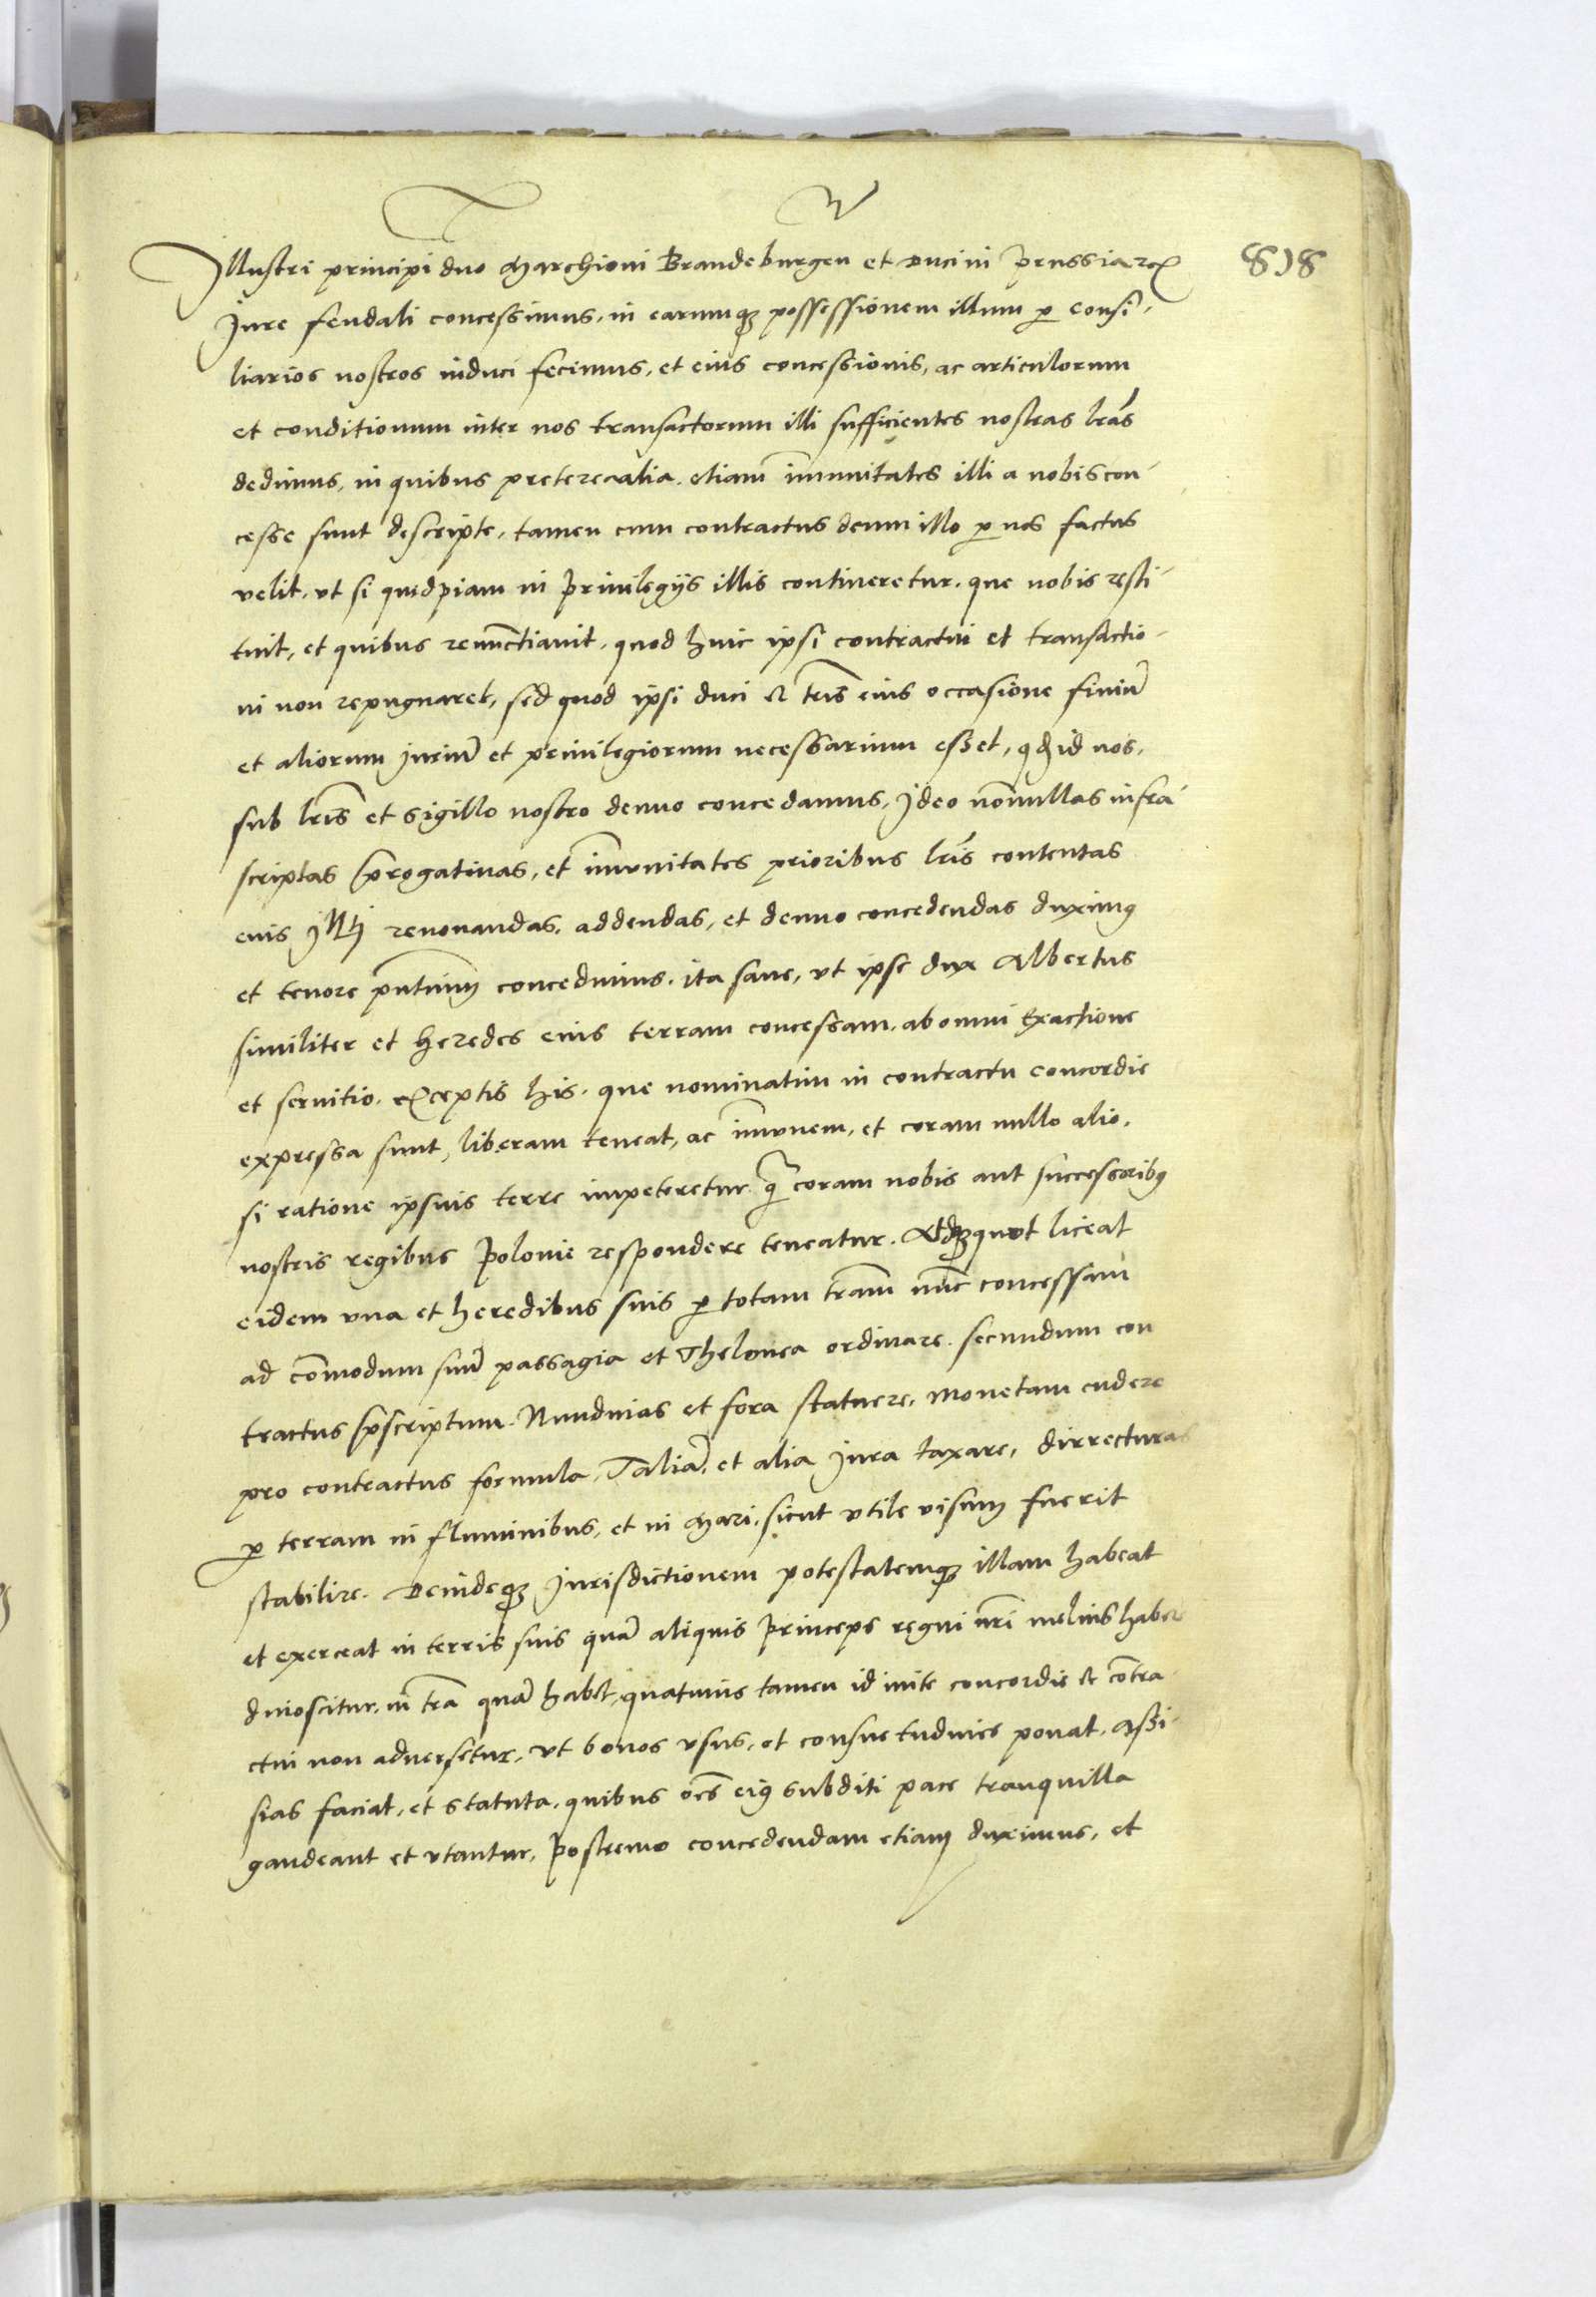 818
Illustri principi dno Marchioni Brandeburgen et Duci in Prussia etc
Jure feudali concessimus, in earumq possessionem illum p consi-
liarios nostros induci fecimus, et eius concessionis, ac articulorum
et conditionum inter nos transactorum illi sufficientes nostras lras
dedimus, in quibus preterea alia etiam imunitates illi a nobis con-
cesse sunt descripte, tamen cum contractus cum illo p nos factus
velit, vt si quidpiam in Privilegijs illis contineretur, que nobis resti-
tuit, et quibus renunctiavit, quod huic ipsi contractui et transactio-
ni non repugnaret, sed quod ipsi duci et tris eius occasione finium
et aliorum jurium et privilegiorum necessarium esset, qd id nos,
sub lris et sigillo nostro denuo concedamus, Ideo nonnullas infra-
scriptas progativas, et imunitates prioribus lris contentas
eius Illti renovandas, addendas, et denuo concedendas duximus
et tenore pntium concedimus, ita sane, vt ipse dux Albertus
similiter et heredes eius terram concessam, ab omni exactione
et servitio, exceptis his, que nominatim in contractu concordie
expressa sunt, liberam teneat, ac imunem, et coram nullo alio,
si ratione ipsius terre impeteretur q coram nobis aut successoribus
nostris regibus Polonie respondere teneatur. Adq quot liceat
eidem vna et heredibus suis p totam tram nunc concessam
ad comodum suum passagia et Thelonea ordinare secundum con
tractus pscriptum. Nundinas et fora statuere, Monetam cudere
pro contractus formula, Taliam, et alia Jura taxare, dirrecturas
p terram in fluminibus, et in Mari, sicut vtile visum fuerit
stabilire. Deindeq Jurisdictionem potestatemq illam habeat
et exerceat in terris suis quam aliquis Princeps regni nri melius habere
dinoscitur, in tra quam habet, quatinus tamen id inite concordie et contra
ctui non adversetur, vt bonos vsus, et consuetudines ponat, Assi-
sias faciat, et statuta, quibus oes eius subditi pace tranquilla
gaudeant et vtantur, Postremo concedendam etiam duximus, et